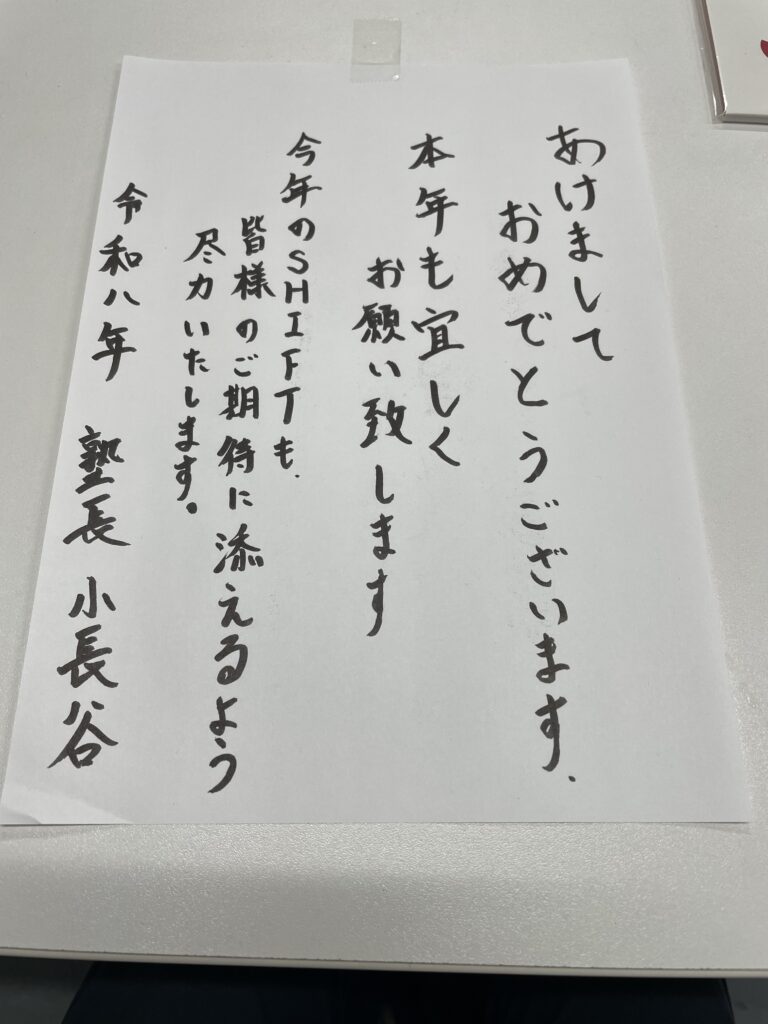 あけまして
おめでとうございます、
本年も宜しく
お願い致します
今年のSHIFTも、
皆様のご期待に添えるよう
尽力いたします。
令和八年 塾長 小長谷